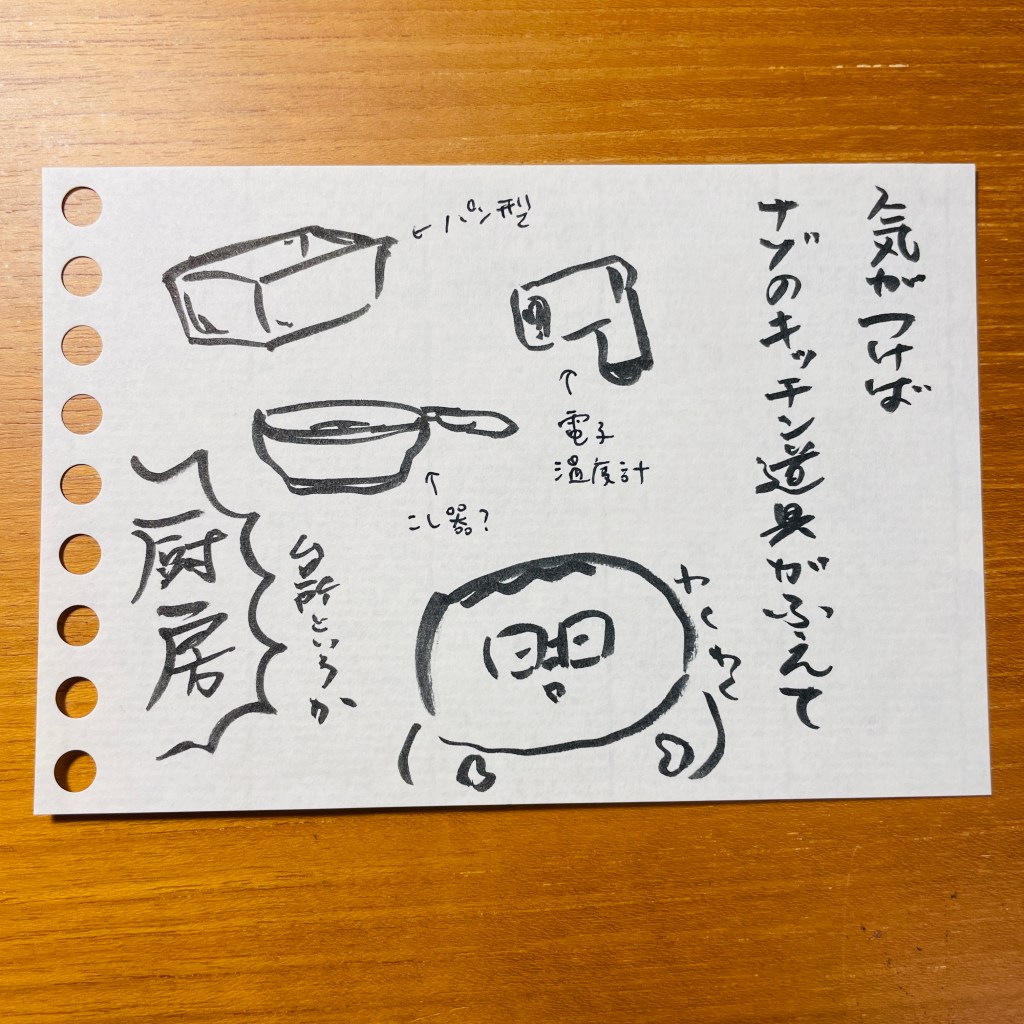 気がつけば
ナゾのキッチン道具がふえて
←パン型
↑
電子
温度計
↑
こし器?
わくわく
台所というか
厨房